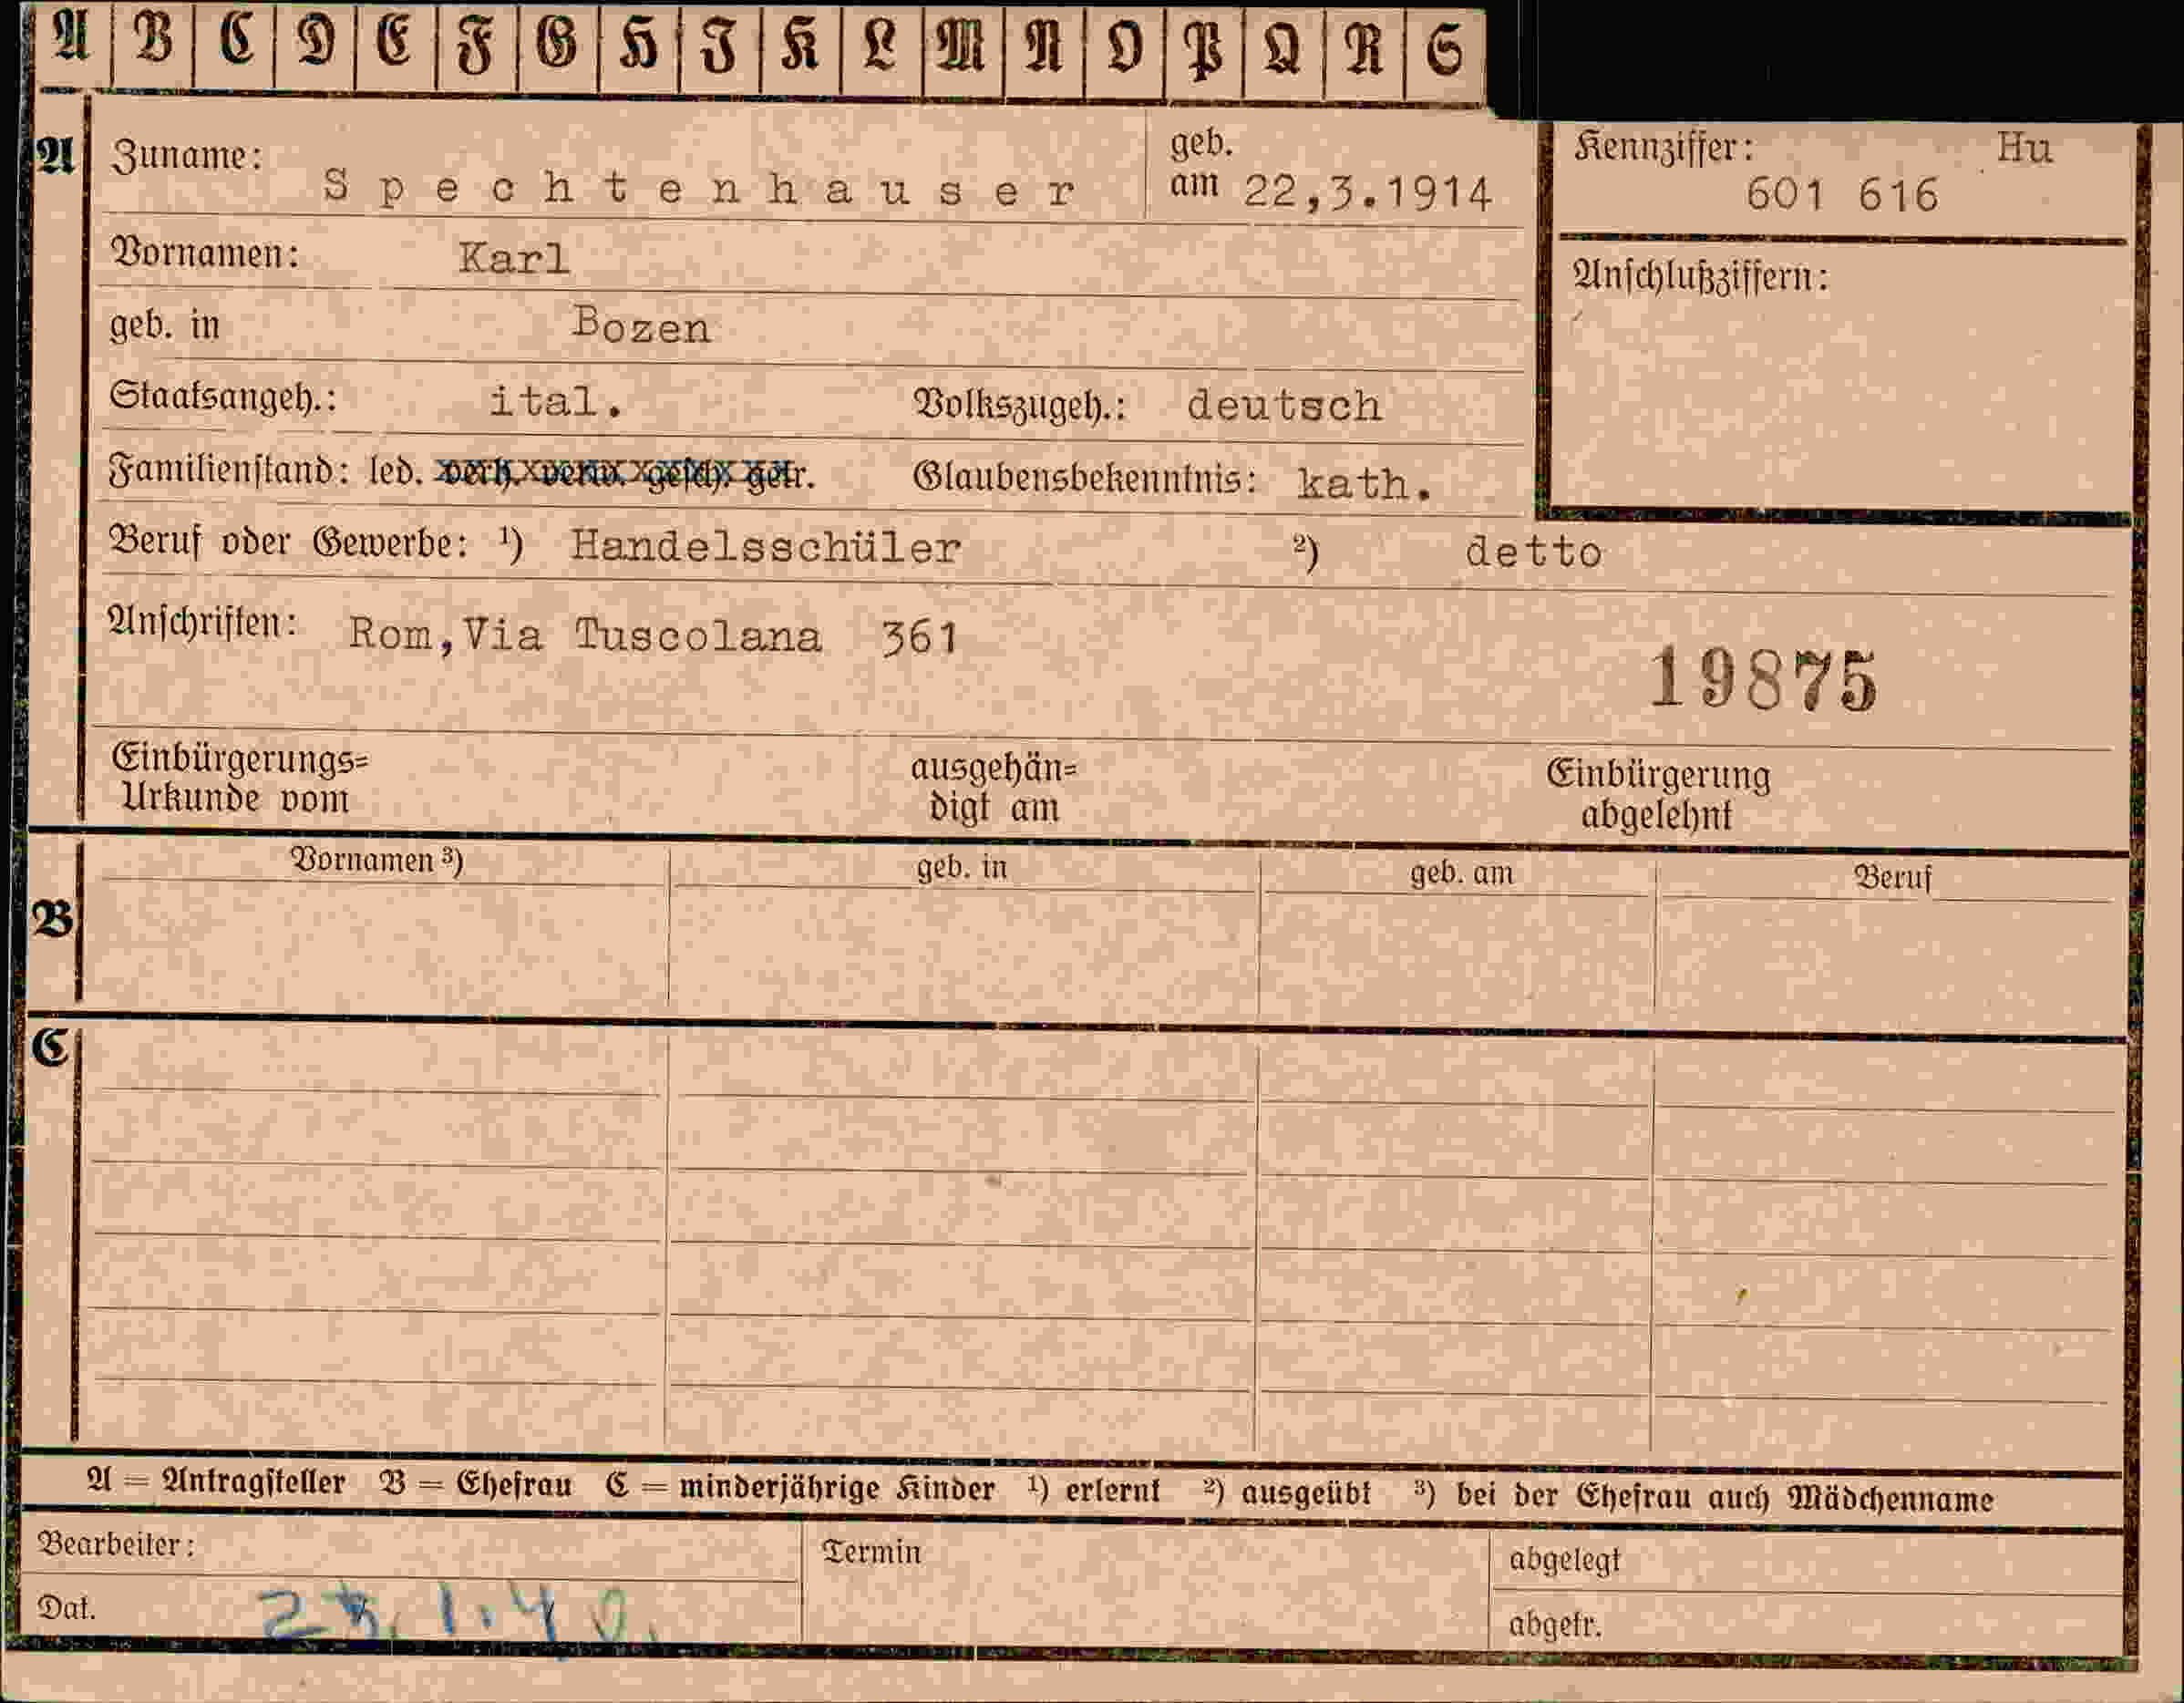 A B C D E F G H I K L M N O P Q R S
A Zuname: Spechtenhauser geb. am 22,3.1914
Kennziffer: Hu
601 616
Vornamen: Karl
Anschlußziffern:
geb. in Bozen
Staatsangeh.: ital. Volkszugeh.: deutsch
Familienstand: led. verh. verw. gesch. getr. Glaubensbekenntnis: kath.
Beruf oder Gewerbe: ¹) Handelsschüler ²) detto
Anschriften: Rom,Via Tuscolana 361
19875
Einbürgerungs= ausgehän= Einbürgerung
Urkunde vom digt am abgelehnt
Vornamen ³) geb. in geb. am Beruf
B
C
A = Antragsteller B = Ehefrau C = minderjährige Kinder ¹) erlernt ²) ausgeübt ³) bei der Ehefrau auch Mädchenname
Bearbeiter: Termin abgelegt
Dat. 1.40. abgetr.